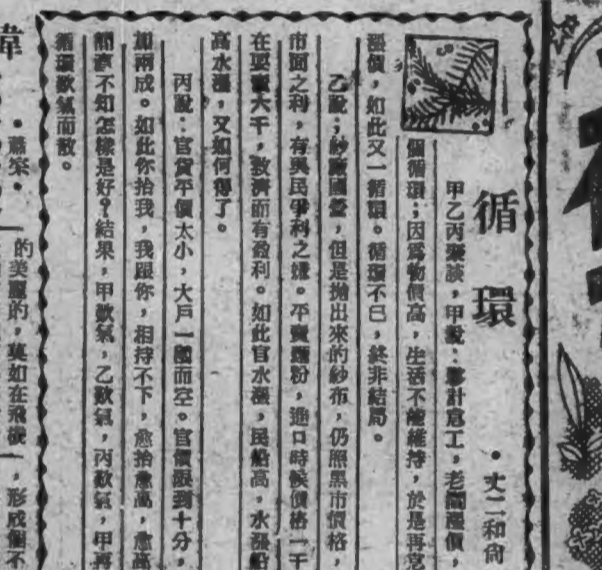 循環
•丈二和尚
甲乙丙聚談,甲說:夥計怠工,老闆漲價,
個循環;因爲物價高,生活不能維持,於是再怠
漲價,如此又一循環。循環不已,終非結局。
乙說;紗廠國營,但是拋出來的紗布,仍照黑市價格,
市面之利,有與民爭利之嫌。平賣麵粉,進口時候價格一千
在要賣六千,救濟而有盈利。如此官水漲,民船高,水漲船
高水漲,又如何得了。
丙說:官貨平價太小,大戶一購而空。官價跟到十分,
加兩成。如此你抬我,我跟你,相持不下,愈抬愈高,愈高
簡直不知怎樣是好?結果,甲歎氣,乙歎氣,丙歎氣,甲再
循環歎氣而散。
•蕭寥•
的美麗的,莫如在飛機
形成個不